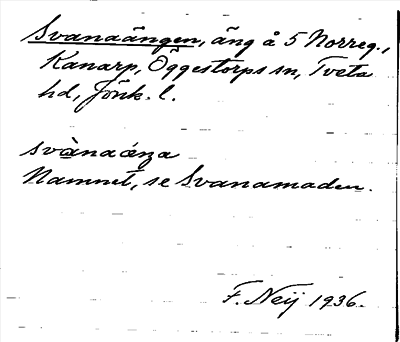 Svanaängen, äng å 5 Norreg.,
Kanarp, Öggestorps sn, Tveta
hd, Jönk. l.
svànaǽŋa
Namnet, se Svanamaden.
F. Neij 1936.